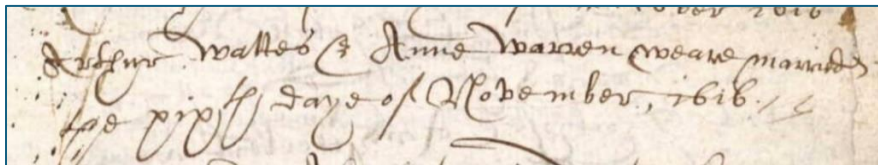 ober 1616
Arthur Wattes & Anne Warren weare married
the xixth daye of November, 1616.